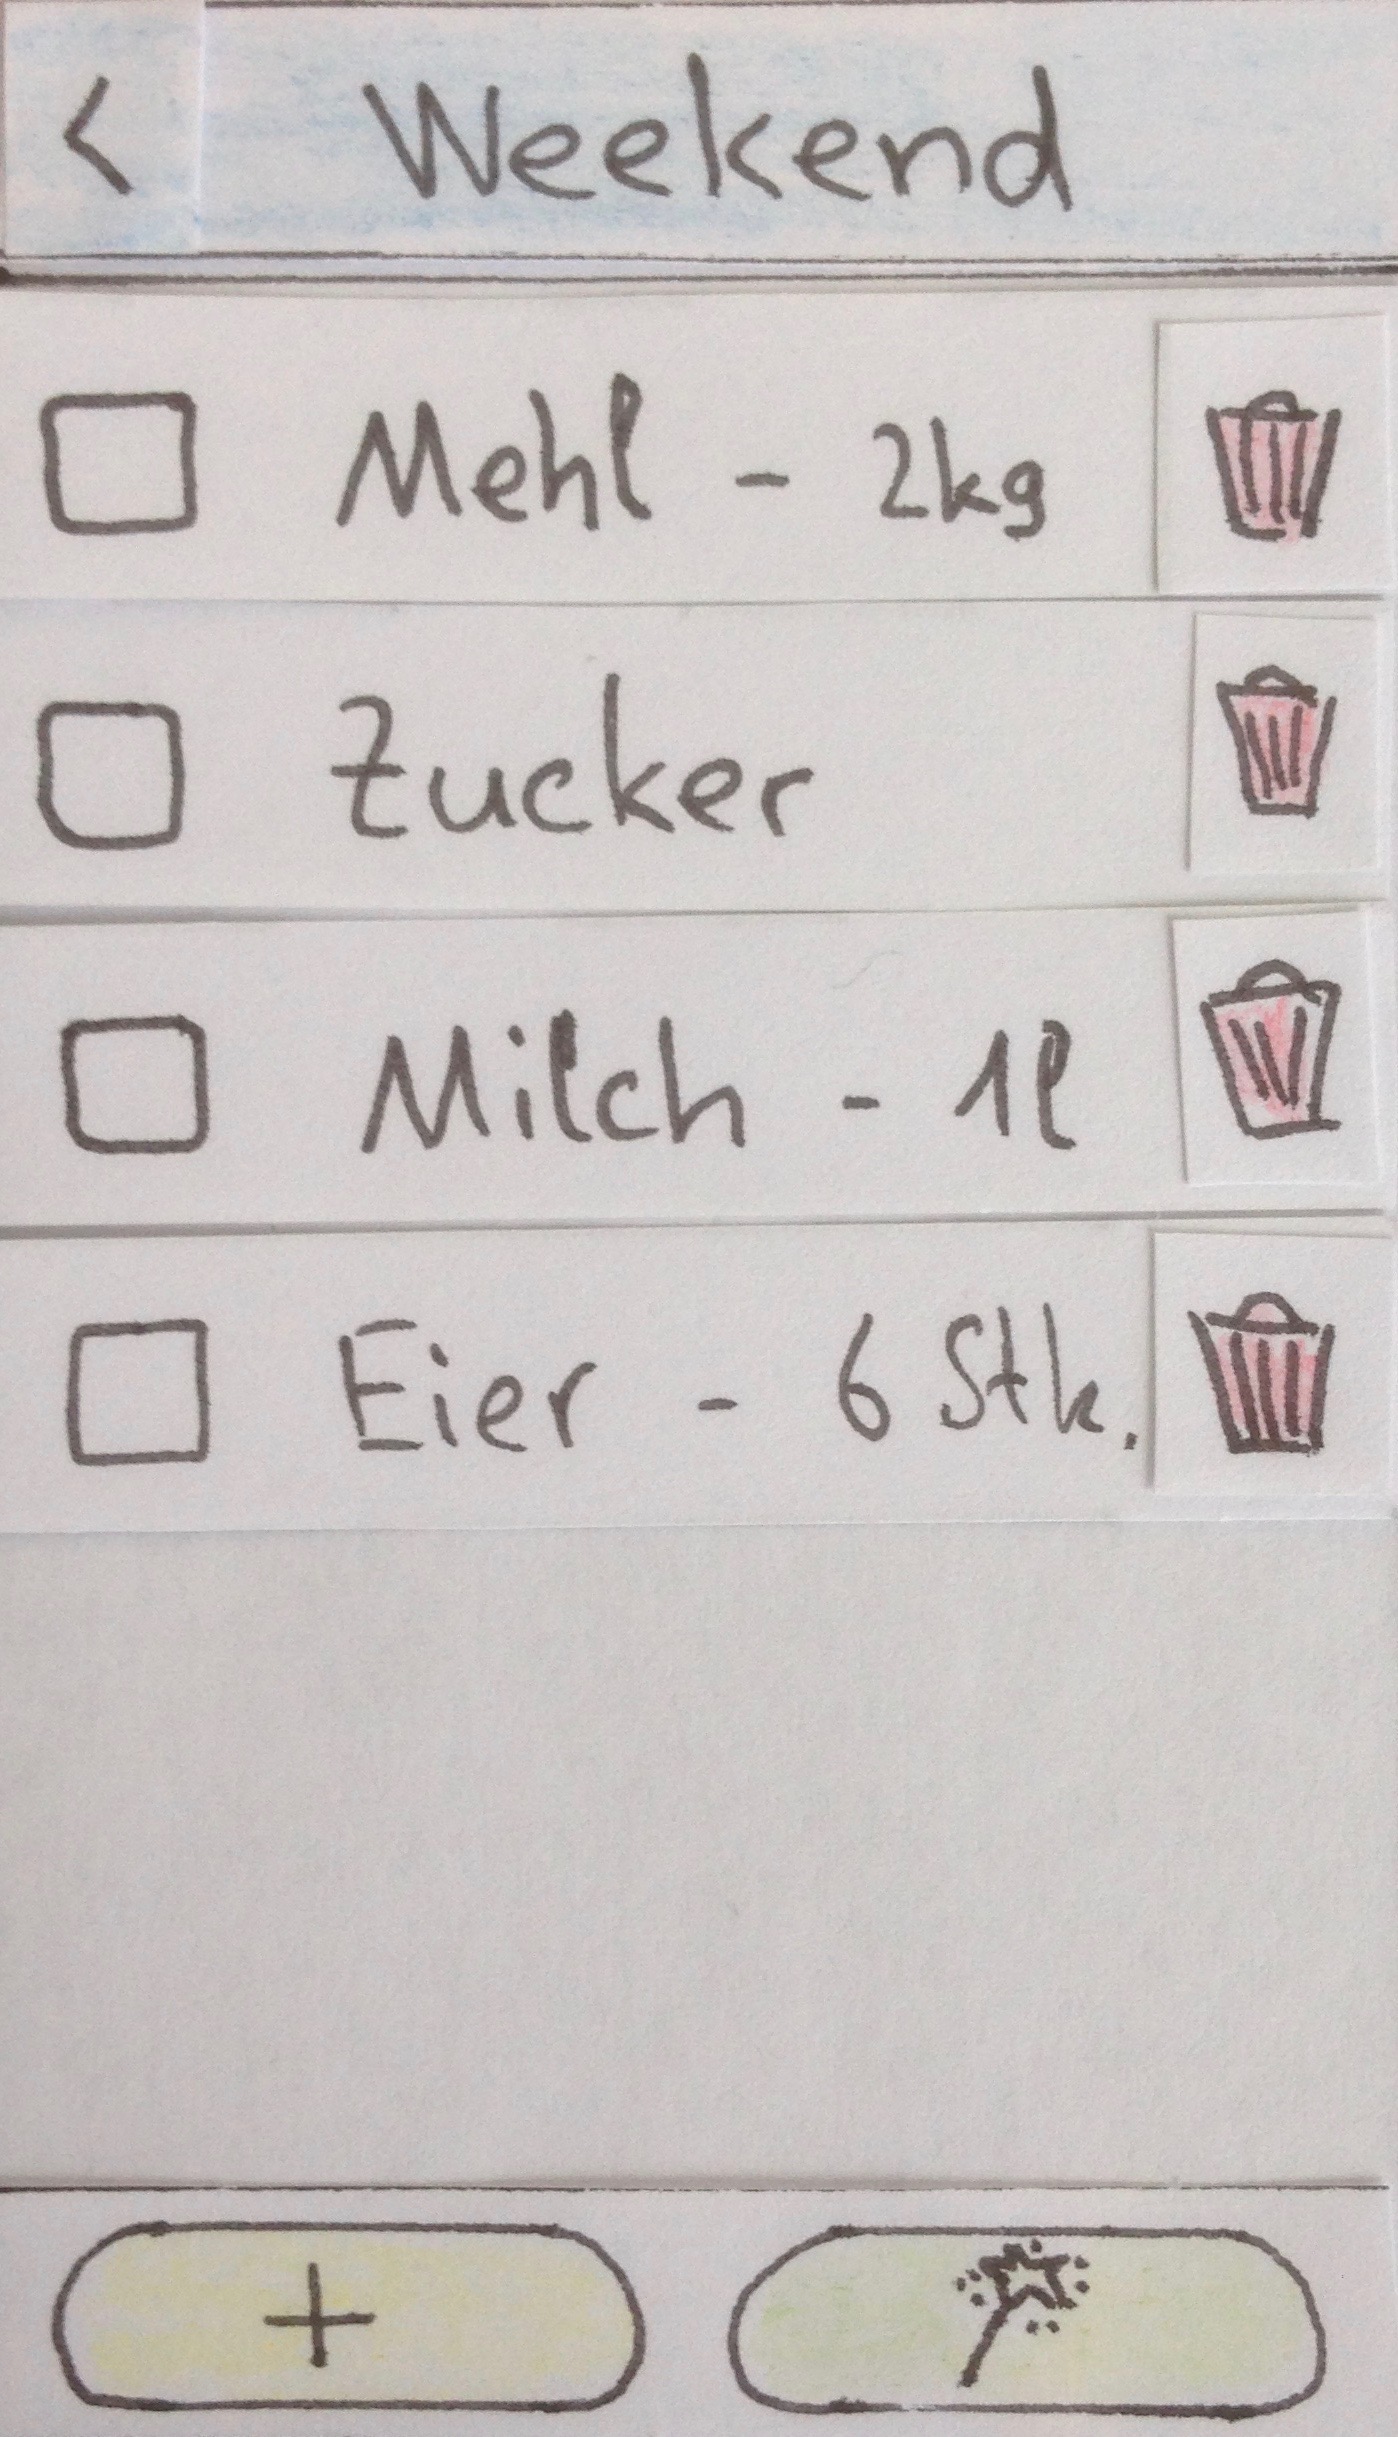 < Weekend
Mehl - 2kg
Zucker
Milch - 1l
Eier - 6 Stk.
+